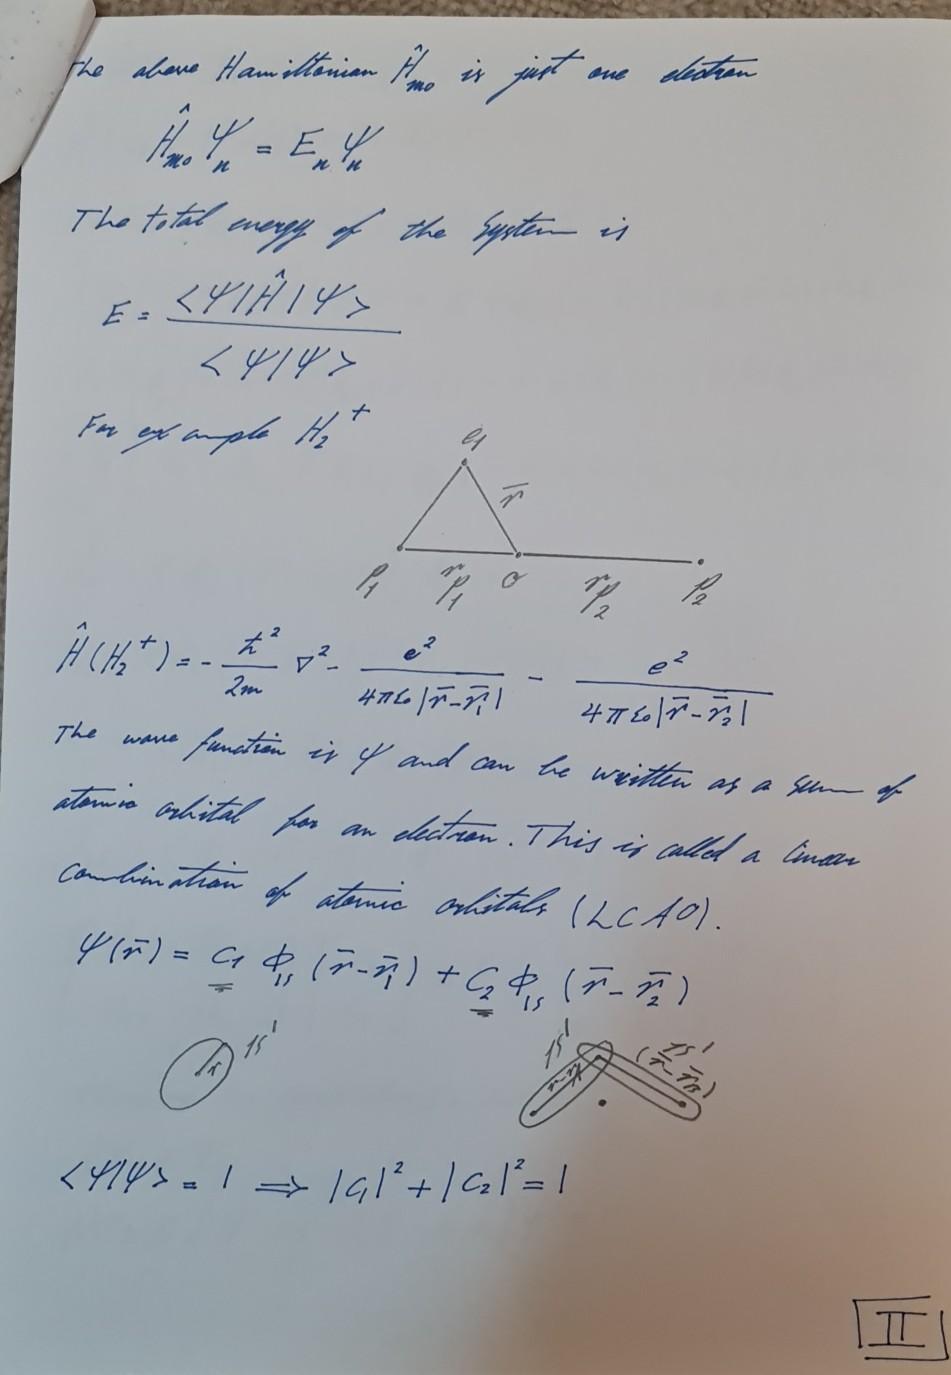 The above Hamiltonian Ĥ_mo is just one electron
Ĥ_mo Ψ_n = E_n Ψ_n
The total energy of the System is
E = <Ψ|Ĥ|Ψ> / <Ψ|Ψ>
For example H₂⁺
e₁
r̄
P₁ r_P₁ O r_P₂ P₂
Ĥ(H₂⁺) = - ħ²/2m ∇² - e²/4πε₀|r̄-r̄₁| - e²/4πε₀|r̄-r̄₂|
The wave function is Ψ and can be written as a sum of
atomic orbital for an electron. This is called a linear
combination of atomic orbitals (LCAO).
Ψ(r̄) = C₁ Φ₁s (r̄-r̄₁) + C₂ Φ₁s (r̄-r̄₂)
r 1s' 1s' 1s'
<Ψ|Ψ> = 1 ⇒ |C₁|² + |C₂|² = 1
II